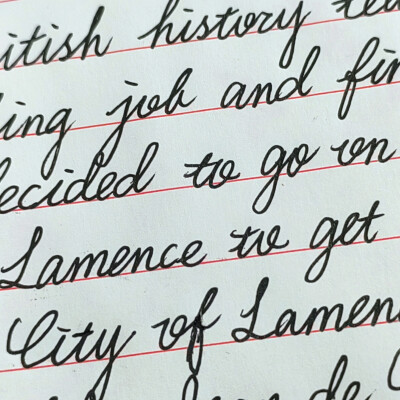 itish history tea
ing job and fin
ecided to go on
Lamence to get
City of Lamen
de